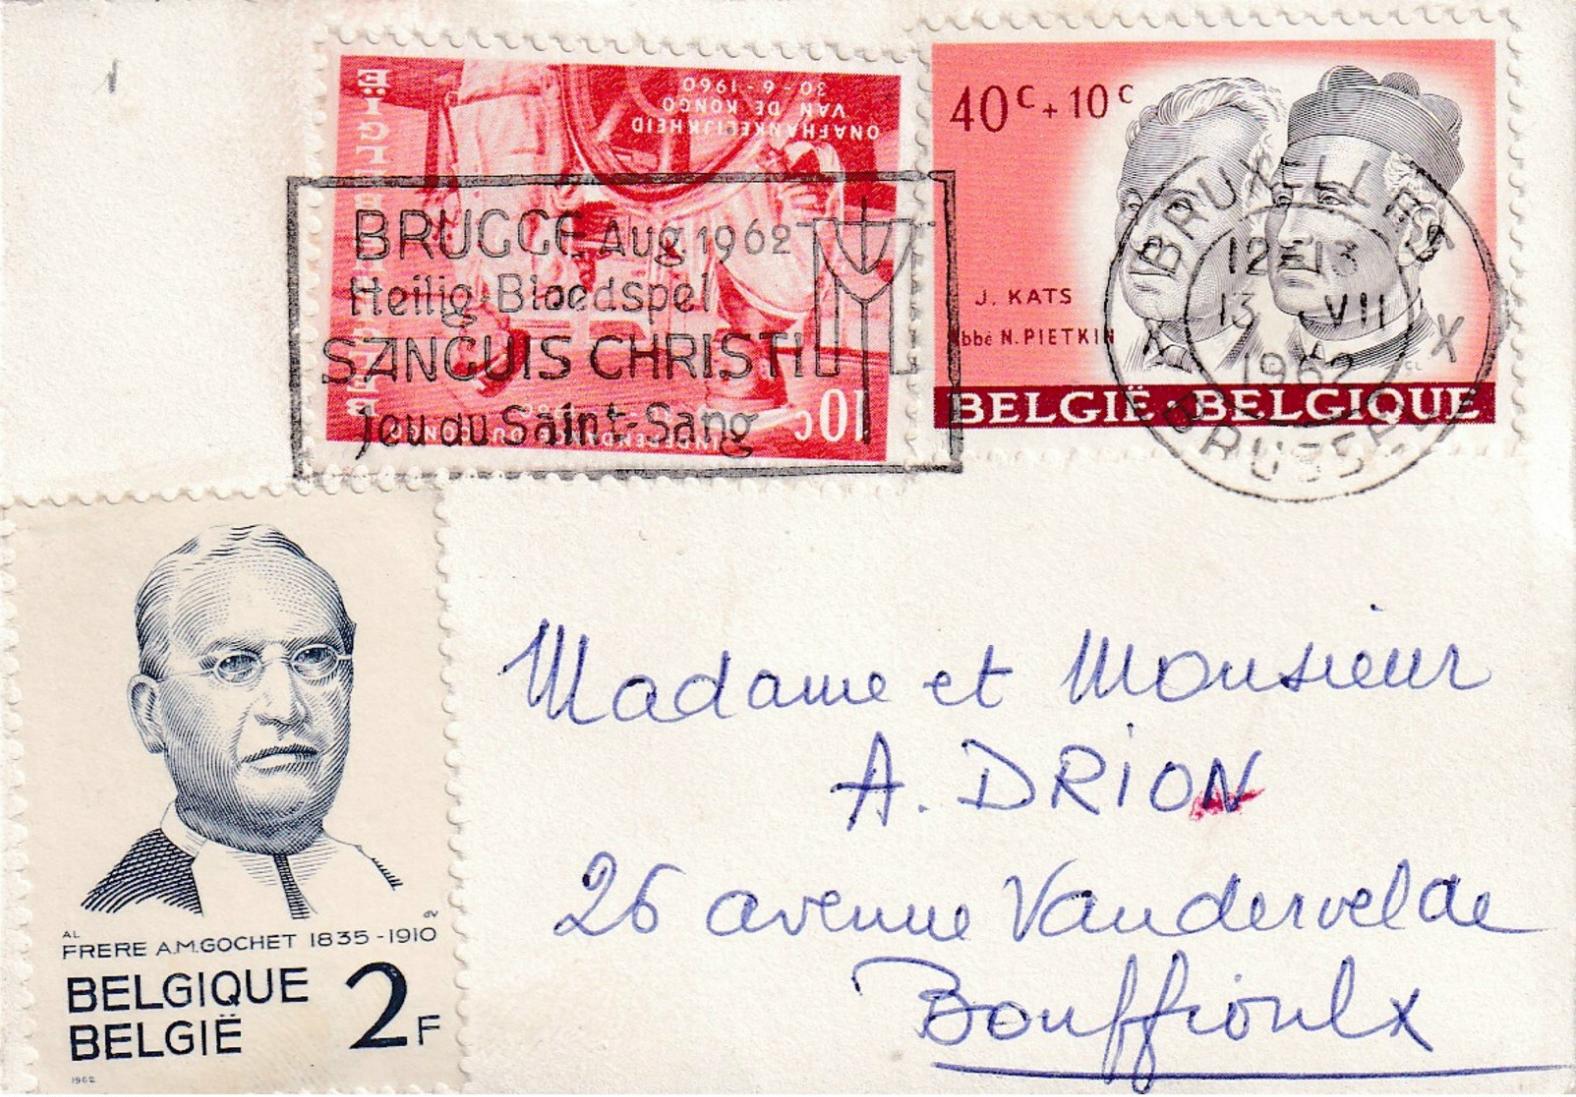 40c + 10c
J. KATS
Abbé N. PIETKIN
BELGIË · BELGIQUE
BRUXELLES X
12-13
13 VII
1962
X BRUSSEL X
ONAFHANKELIJKHEID
VAN DE KONGO
30 - 6 - 1960
BELGIË
10c
INDEPENDANCE DU CONGO
BRUGGE Aug 1962
Heilig-Bloedspel
SANGUIS CHRISTI
Jeu du Saint-Sang
AL
FRERE A.M.GOCHET 1835 - 1910
BELGIQUE
BELGIË
2F
1962
Madame et Monsieur
A. DRION
26 avenue Vandervelde
Bouffioulx